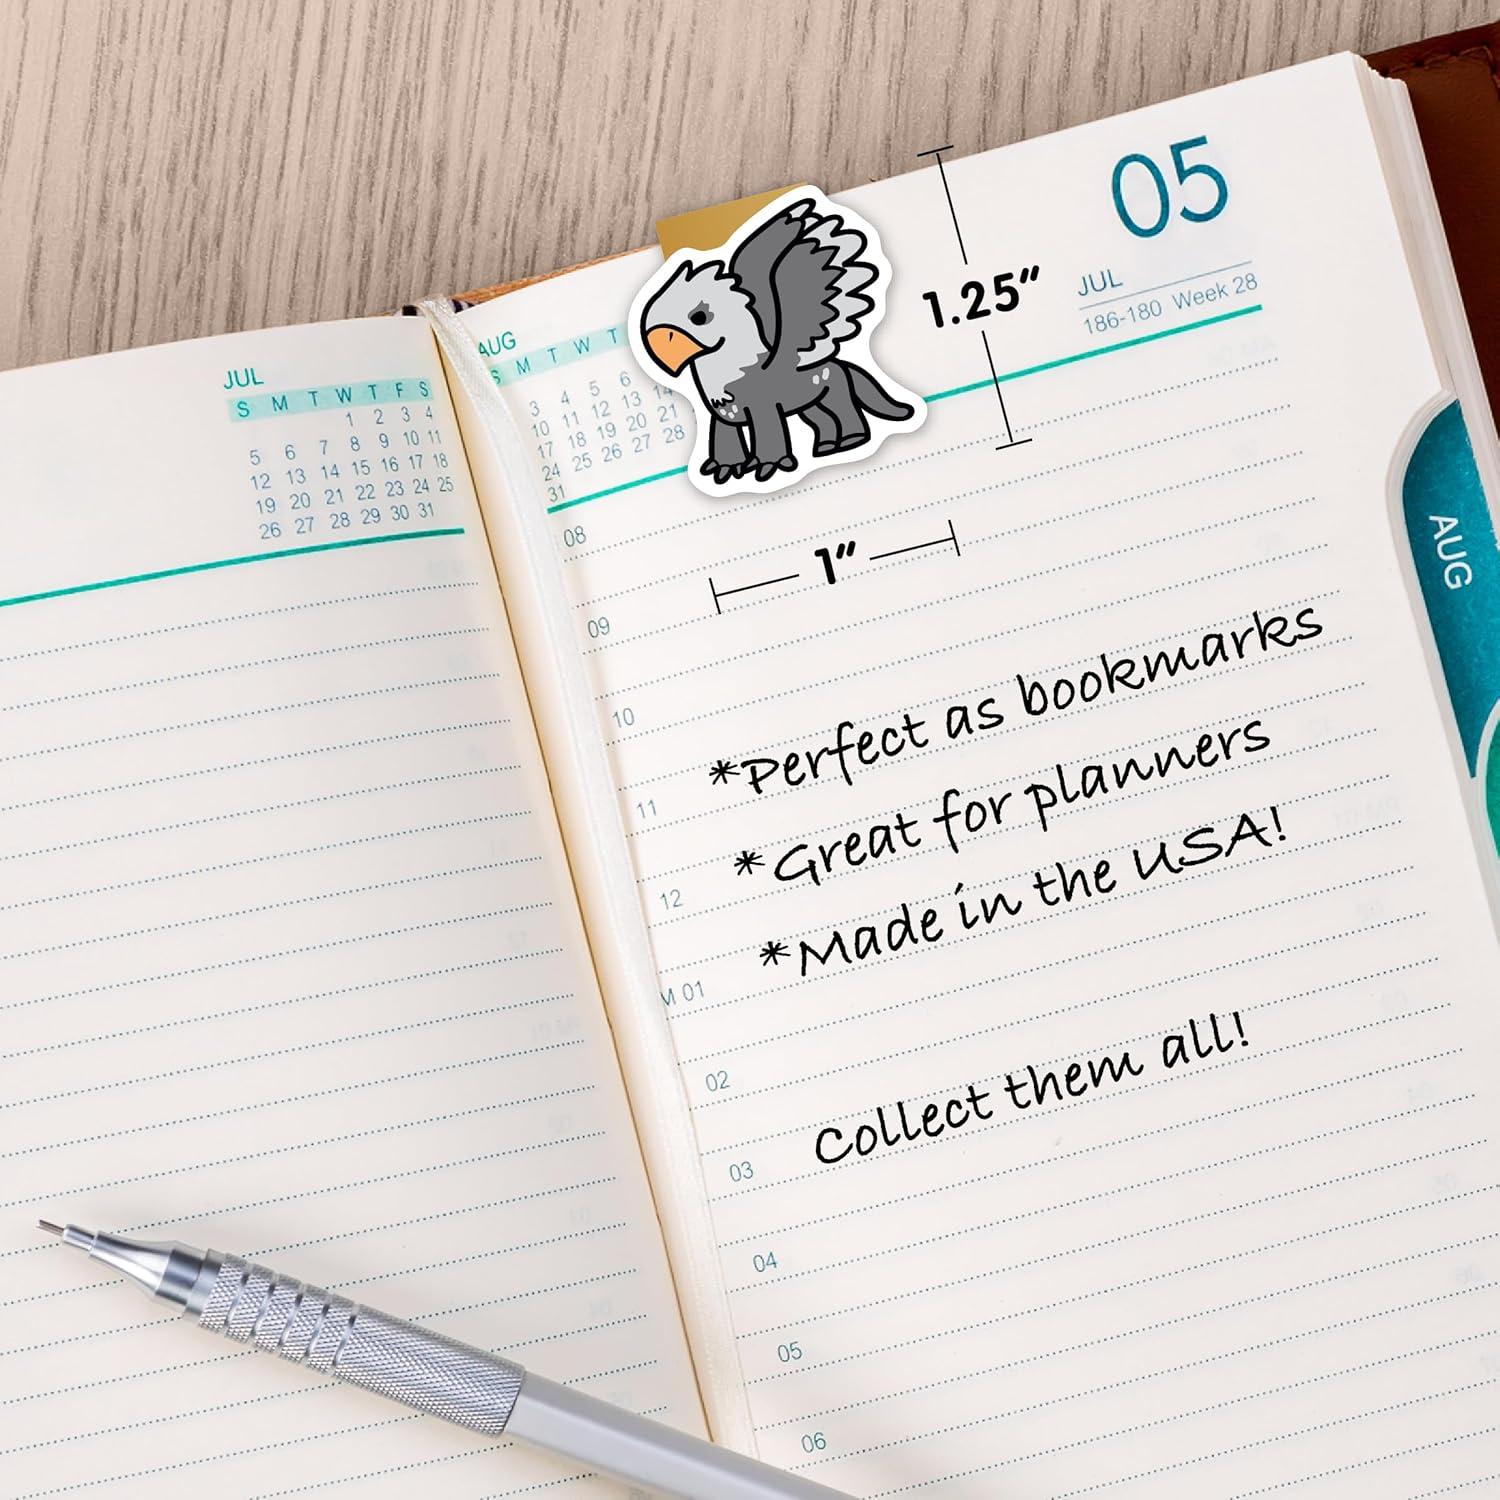 JUL
S M T W T F S
1 2 3 4
5 6 7 8 9 10 11
12 13 14 15 16 17 18
19 20 21 22 23 24 25
26 27 28 29 30 31
AUG
S M T W T
3 4 5 6
10 11 12 13 14
17 18 19 20 21
24 25 26 27 28
31
05
JUL
186-180 Week 28
1.25"
1"
08
09
10
11
12
01
02
03
04
05
06
*Perfect as bookmarks
*Great for planners
*Made in the USA!
Collect them all!
AUG